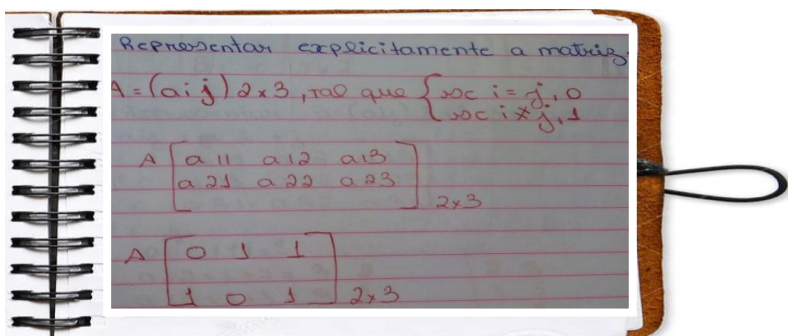 Representar explicitamente a matriz
A = (aij) 2x3, tal que { se i = j, 0
se i ≠ j, 1
A [ a 11 a 12 a 13
a 21 a 22 a 23 ] 2x3
A [ 0 1 1
1 0 1 ] 2x3